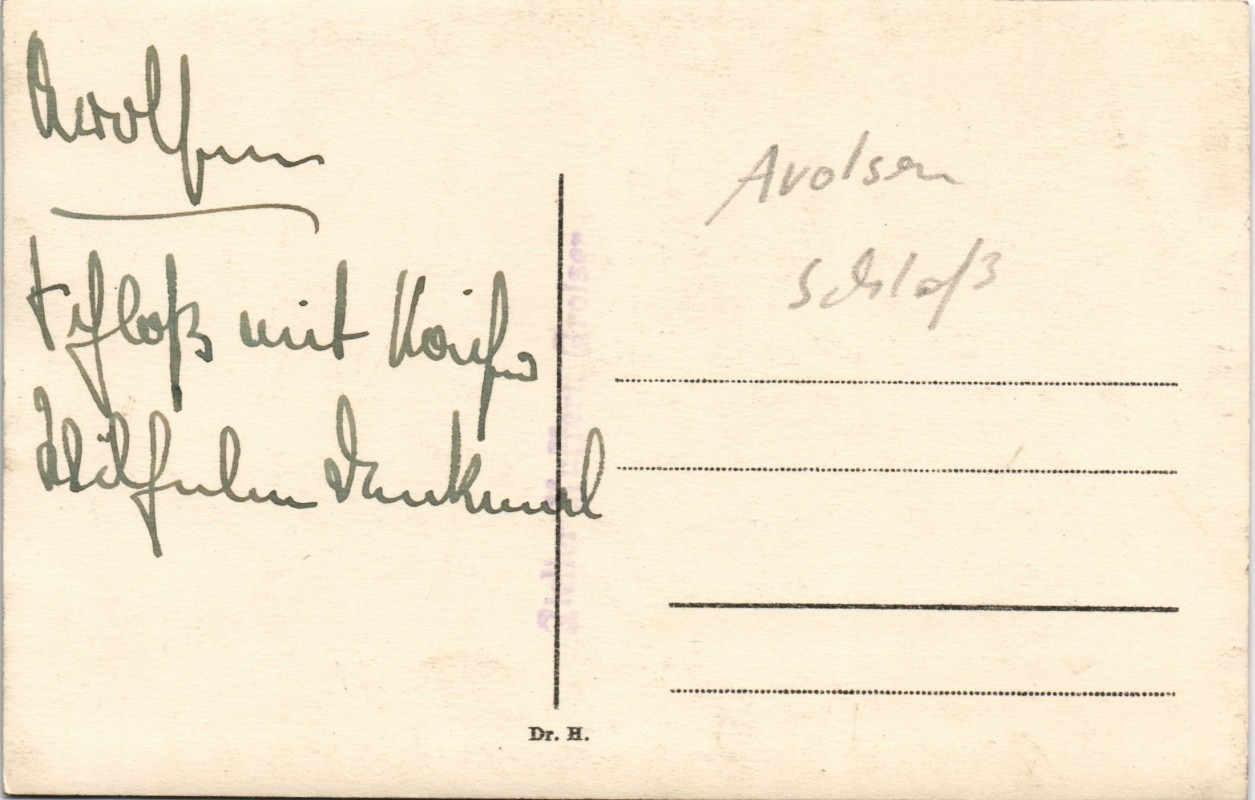 Arolsen
Schloß mit Kaiser
Wilhelm Denkmal
Avolsen
Schloß
Dr. H.